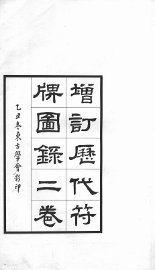 增訂歷代符
牌圖錄二卷
乙丑冬東方學會影印